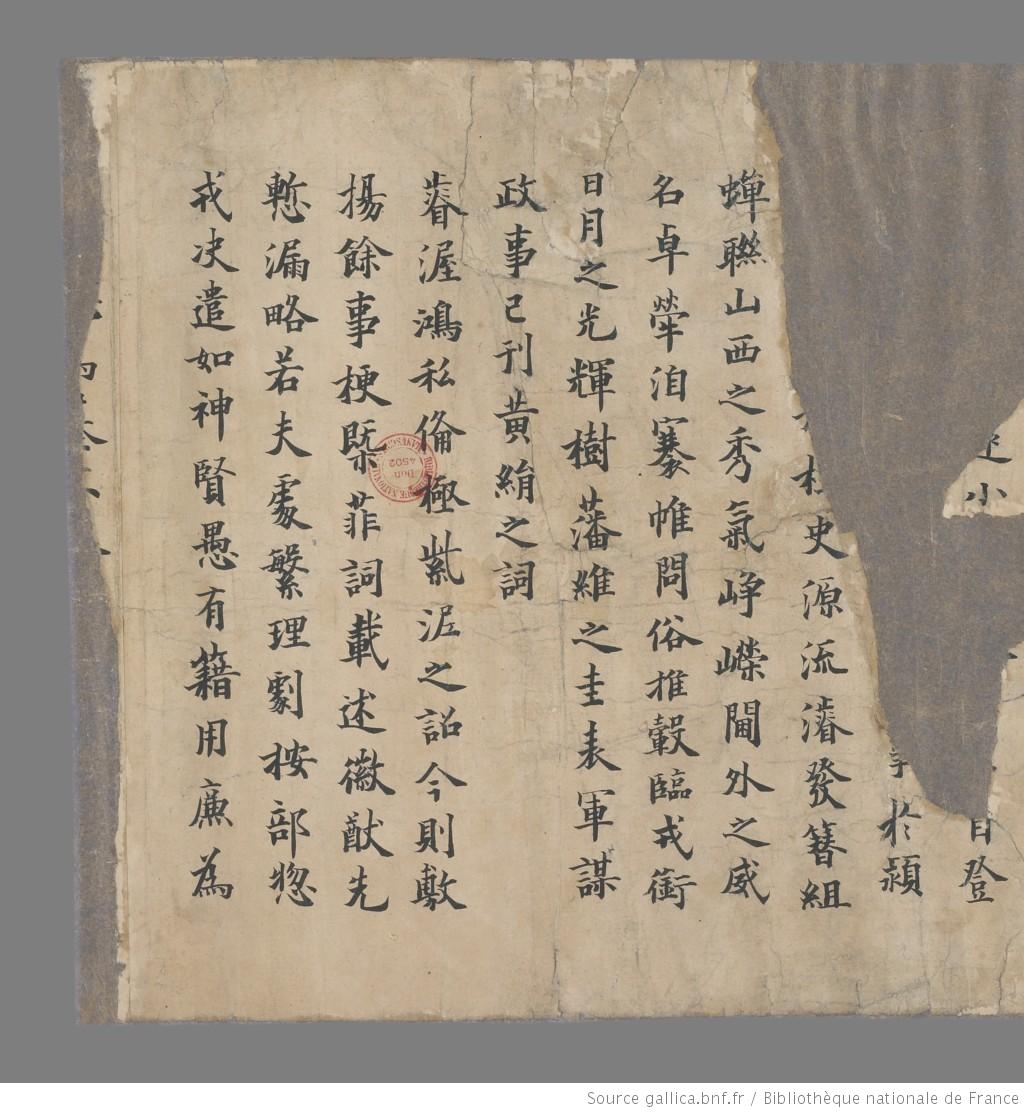 小
日登
於潁
史源流濬發簪組
蟬聯山西之秀氣崢嶸閫外之威
名卓犖洎褰帷問俗推轂臨戎銜
日月之光輝樹藩維之圭表軍謀
政事已刊黄絹之詞
睿渥鴻私俻極紫泥之詔今則敷
揚餘事梗槩菲詞載述徽猷先
慙漏略若夫處繁理劇按部惣
戎决遣如神賢愚有籍用廉為
Source gallica.bnf.fr / Bibliothèque nationale de France